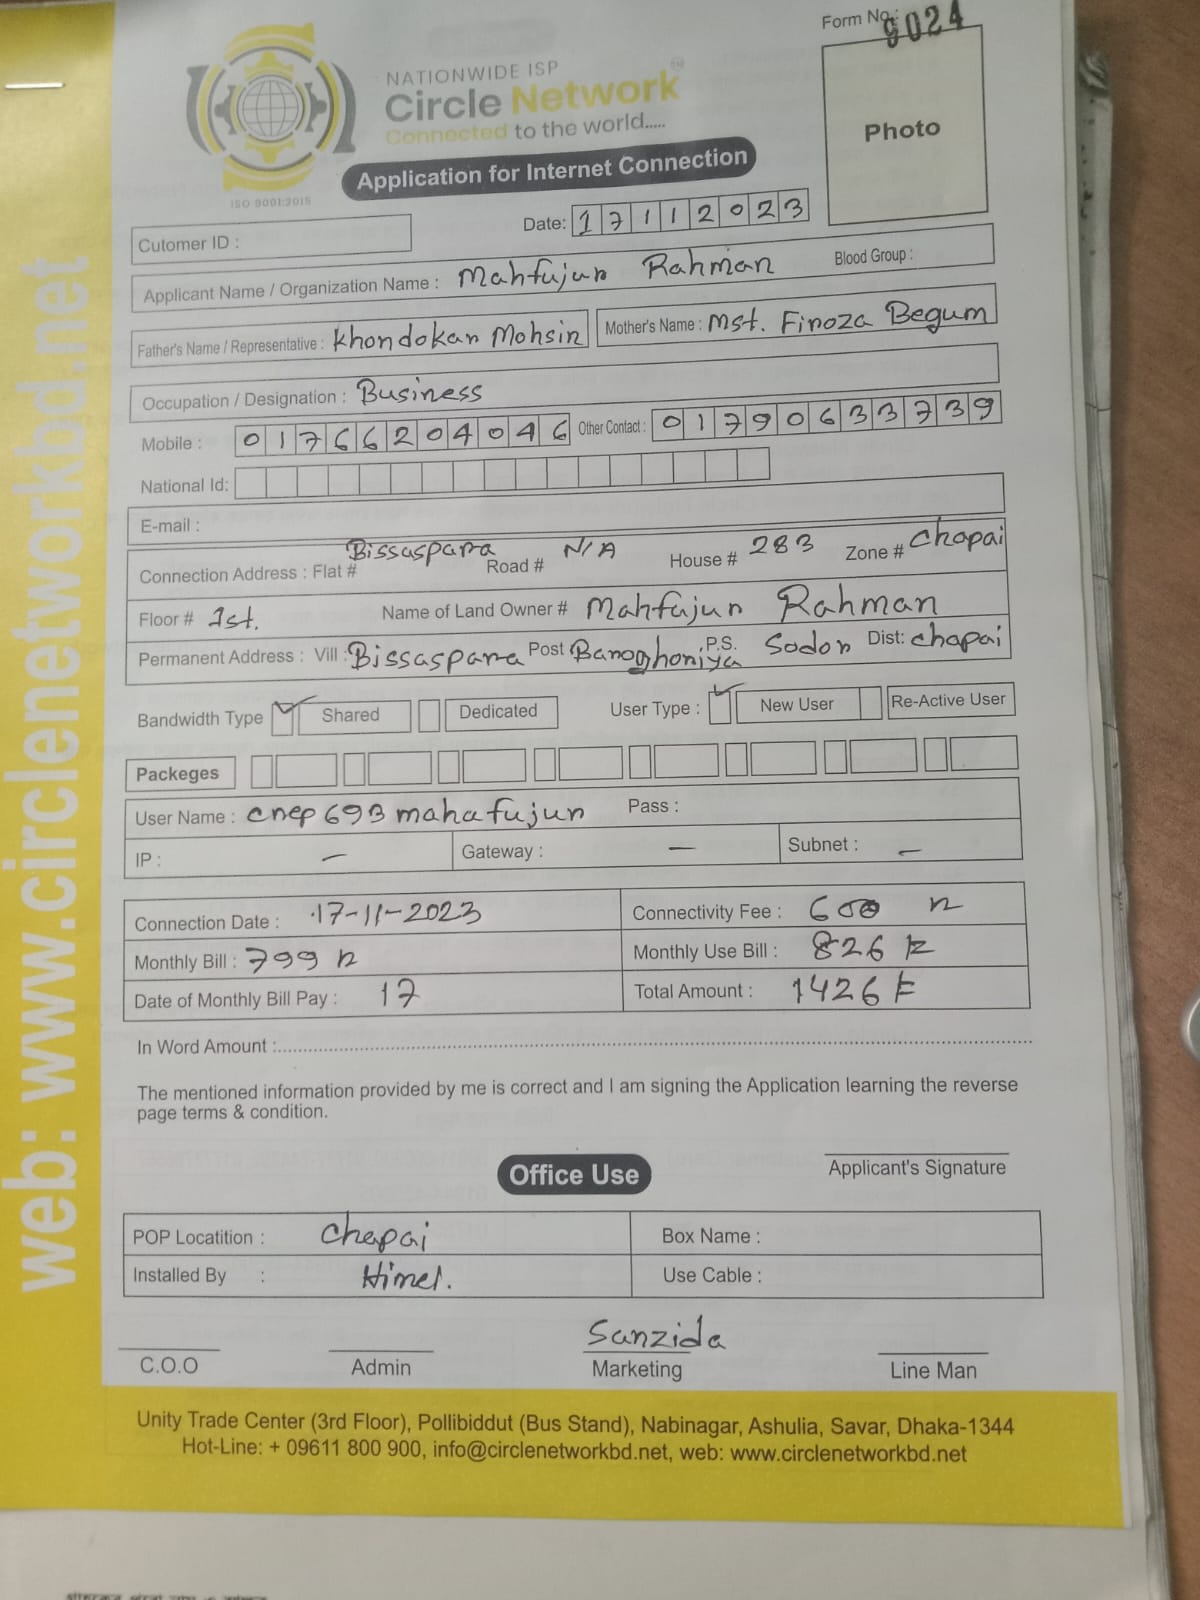 Form No.: 9024
NATIONWIDE ISP
Circle Network
Connected to the world.....
ISO 9001:2015
Photo
Application for Internet Connection
Date: 17112023
Cutomer ID :
Applicant Name / Organization Name : Mahfujur Rahman Blood Group :
Father's Name / Representative : Khondokar Mohsin Mother's Name : Mst. Firoza Begum
Occupation / Designation : Business
Mobile : 01766204046 Other Contact : 01790633739
National Id:
E-mail :
Connection Address : Flat # Bissaspara Road # N/A House # 283 Zone # Chapai
Floor # 1st. Name of Land Owner # Mahfujur Rahman
Permanent Address : Vill : Bissaspara Post Baroghoriya P.S. Sodor Dist: Chapai
Bandwidth Type Shared Dedicated User Type : New User Re-Active User
Packeges
User Name : cnep693mahafujur Pass :
IP : — Gateway : — Subnet : —
Connection Date : 17-11-2023 Connectivity Fee : 600
Monthly Bill : 799 Monthly Use Bill : 826
Date of Monthly Bill Pay : 17 Total Amount : 1426
In Word Amount :
The mentioned information provided by me is correct and I am signing the Application learning the reverse
page terms & condition.
Applicant's Signature
Office Use
POP Locatition : Chapai Box Name :
Installed By : Himel. Use Cable :
Sanzida
C.O.O Admin Marketing Line Man
Unity Trade Center (3rd Floor), Pollibiddut (Bus Stand), Nabinagar, Ashulia, Savar, Dhaka-1344
Hot-Line: + 09611 800 900, info@circlenetworkbd.net, web: www.circlenetworkbd.net
web: www.circlenetworkbd.net